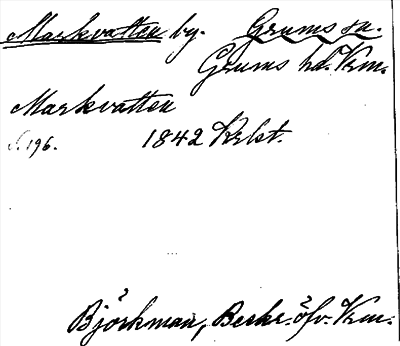 Markvatten by. Grums sn.
Grums hd. Vrm.
Markvatten
S. 196. 1842 Krlst.
Björkman, Beskr. öfv. Vrm.